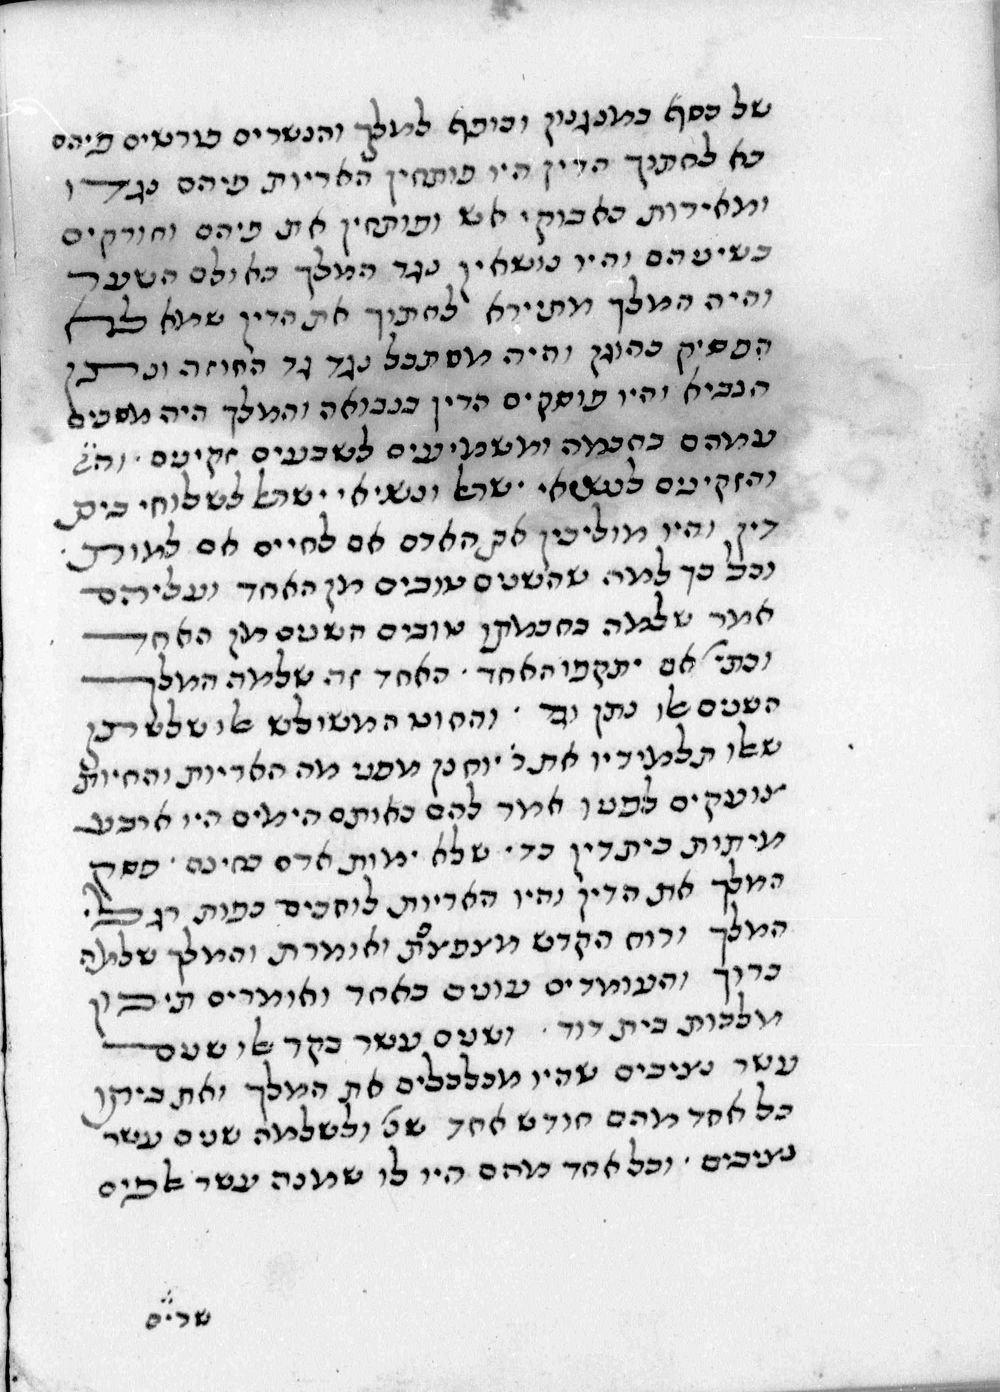 של כסף במנגנון וכופף למלך והנשרים פורשים פיהם
בא לחתוך הדין היו פותחין האריות פיהם נגדו
ומאירות כאבוקי אש ופותחין את פיהם וחורקים
בשיניהם והיו נושאין נגד המלך באולם השער
והיה המלך מתיירא לחתוך את הדין שמא לא
הפסיק כהוגן והיה מסתכל נגד גד החוזה ונתן
הנביא והיו פוסקים הדין בנבואה והמלך היה מסכים
עמהם בחכמה ומשמיעים לשבעים זקינים ׳ וה׳׳ז
והזקינים לנשיאי ישראל ונשיאי ישראל לשלוחי בית
דין והיו מוליכין את האדם אם לחיים אם למות ׳
וכל כך למה שהשנים טובים מן האחד ועליהם
אמר שלמה בחכמתו טובים השנים מן האחד
וכתי׳ אם יתקפו האחד ׳ האחד זה שלמה המלך
השנים אלו נתן וגד ׳ והחוט המשולש אלו שלשתן
שאלו תלמידיו את ר׳ יוחנן מפני מה האריות והחיות
צועקים לפניו אמר להם באותם הימים היו ארבע
מיתות בית דין כדי שלא ימות אדם בחינם ׳ פסק
המלך את הדין והיו האריות לוחכים כפות רגלי
המלך ורוח הקדש מצפצפת ואומרת והמלך שלמה
ברוך והעומדים עונים כאחד ואומרים תיכון
מלכות בית דוד ׳ ושנים עשר בקר אלו שנים
עשר נציבים שהיו מכלכלים את המלך ואת ביתו
כל אחד מהם חודש אחד שנ׳ ולשלמה שנים עשר
נציבים ׳ וכל אחד מהם היו לו שמנה עשר אלפים
שרי׳׳ם